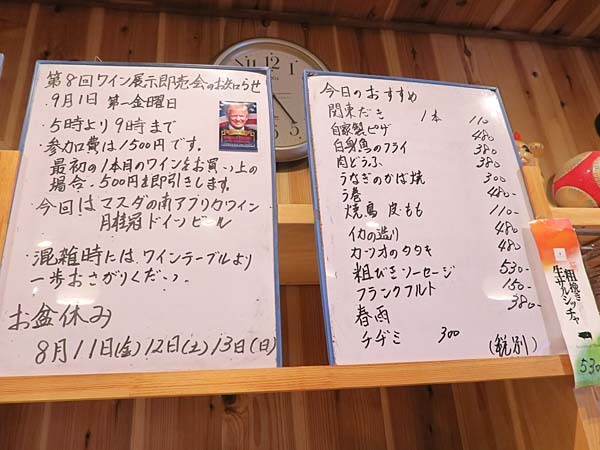 第8回ワイン展示即売会のお知らせ
・9月1日 第一金曜日
・5時より9時まで
・参加費は1500円です。
最初の1本目のワインをお買い上の
場合、500円を即引きします。
・今回はマスダの南アフリカワイン
月桂冠ドイツビール
・混雑時には、ワインテーブルより
一歩おさがりください。
お盆休み
8月11日(金)12日(土)13日(日)
今日のおすすめ
関東だき 1本 110
自家製ピザ 480
白身魚のフライ 380
肉どうふ 380
うなぎのかば焼 300
う巻 480-
焼鳥 皮・もも 110-
イカの造り 480
カツオのタタキ 480
粗びきソーセージ 530-
フランクフルト 150-
春雨 380-
チヂミ 300
(税別)
粗挽き
生サルシッチャ
530